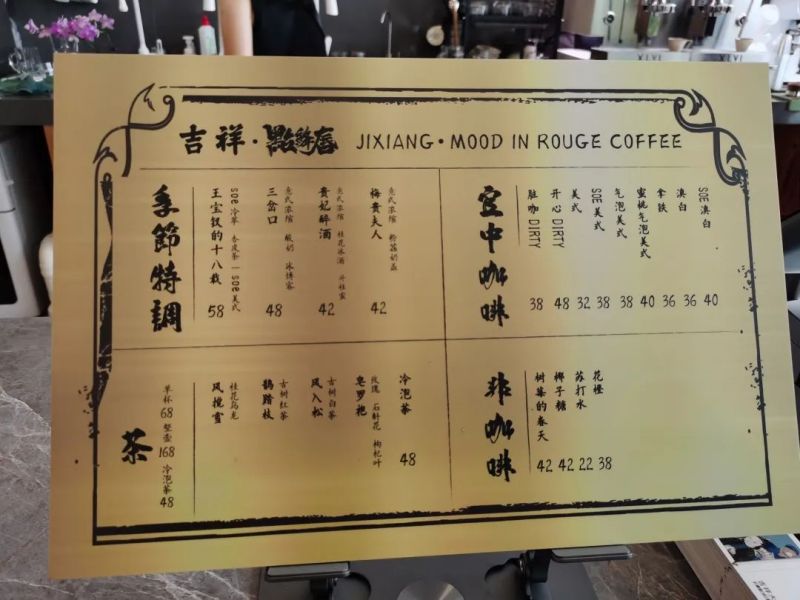 吉祥·點絳唇 JIXIANG·MOOD IN ROUGE COFFEE
季節特調
王宝钗的十八载
soe 冷萃 香皮茶 | soe 美式
58
三岔口
意式浓缩 酸奶 冰博客
48
貴妃醉酒
意式浓缩 桂花冰酒
42
梅贵夫人
意式浓缩 粉荔奶盖
42
空中咖啡
脏咖 DIRTY 38
开心 DIRTY 48
美式 32
SOE 美式 38
气泡美式 38
蜜桃气泡美式 40
拿铁 36
澳白 36
SOE 澳白 40
茶
单杯 68 整壶 168 冷泡茶 48
风搅雪
桂花乌龙
鹊踏枝
古树红茶
风入松
古树白茶
皂罗袍
玫瑰 石斛花 枸杞叶
冷泡茶 48
非咖啡
树葉的春天 42
椰子糖 42
苏打水 22
花橙 38